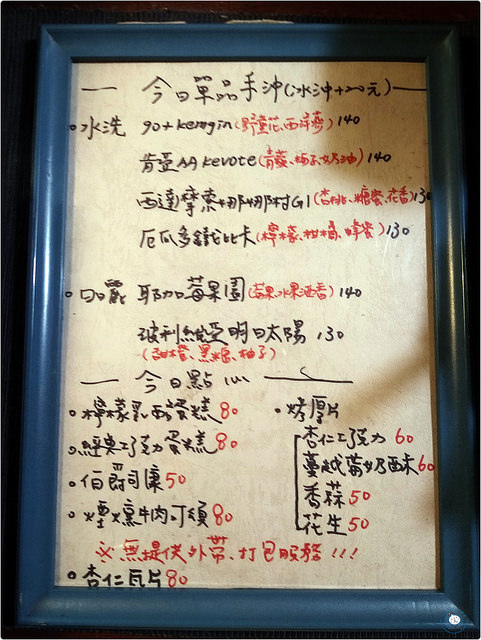 今日單品手沖(冰沖+20元)
水洗 90+ kemgin(野薑花、西洋蔘) 140
肯亞AA kevote(青蘋、梅子、奶油) 140
西達摩東娜娜村G1(杏桃、糖蜜、花香)130
厄瓜多鐵比卡(檸檬、柑橘、蜂蜜)130
日曬 耶加莓果園(莓果、水果酒香) 140
玻利維亞明日太陽 130
(甜橙、黑糖、柚子)
今日點心
檸檬乳酪蛋糕 80
經典巧克力蛋糕 80
伯爵司康 50
煙燻牛肉可頌 80
烤厚片
杏仁巧克力 60
蔓越莓奶酥 60
香蒜 50
花生 50
※無提供外帶、打包服務!!!
杏仁瓦片 80